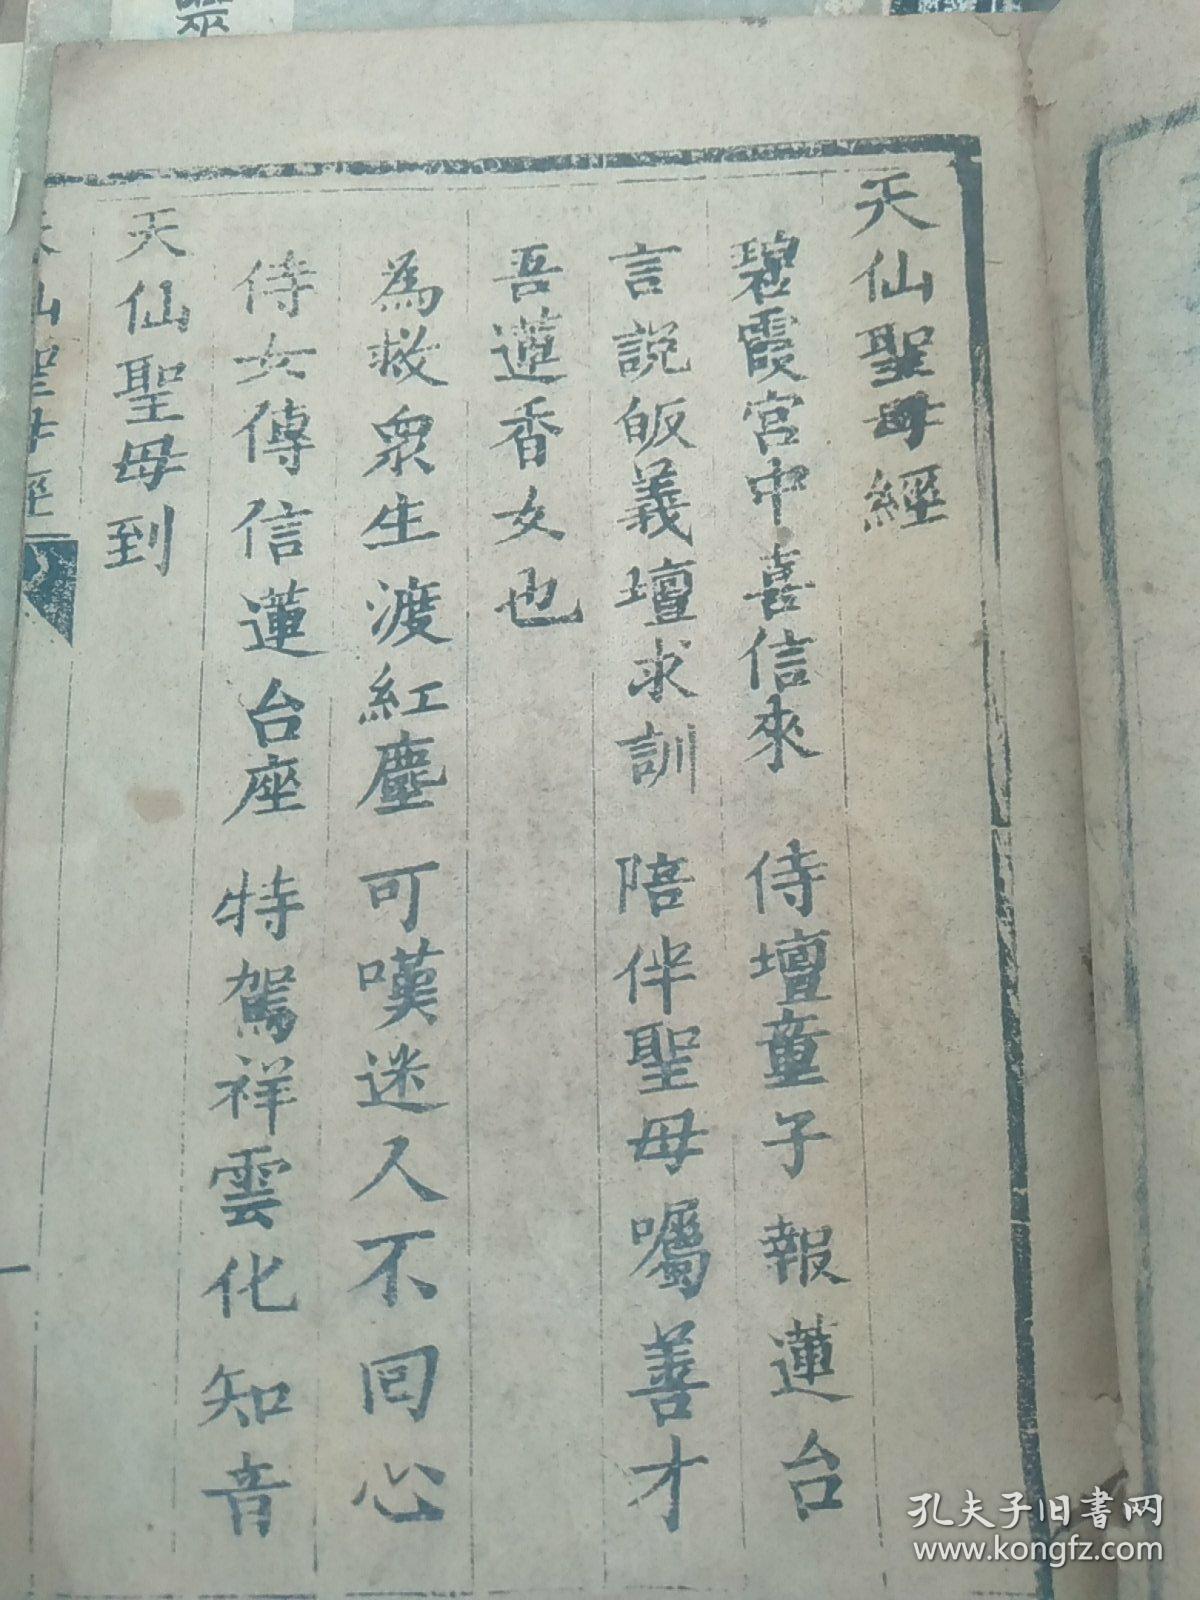 天仙聖母經
碧霞宮中喜信來　侍壇童子報蓮台
言說皈義壇求訓　陪伴聖母囑善才
吾蓮香女也
為救眾生渡紅塵　可嘆迷人不回心
侍女傳信蓮台座　特駕祥雲化知音
天仙聖母到
天仙聖母經
孔夫子旧书网
www.kongfz.com